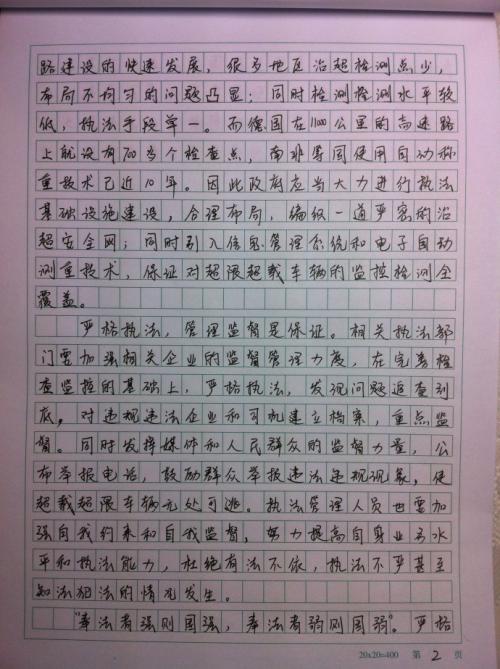 路建设的快速发展，很多地区治超检测点少，
布局不均匀的问题凸显；同时检测检测水平较
低，执法手段单一。而德国在11000公里的高速路
上就设有700多个检查点，南非等国使用自动称
重技术已近10年。因此政府应当大力进行执法
基础设施建设，合理布局，编织一道严密的治
超安全网；同时引入信息管理系统和电子自动
测重技术，保证对超限超载车辆的监控检测全
覆盖。
严格执法，管理监督是保证。相关执法部
门要加强相关企业的监督管理力度，在完善检
查监控的基础上，严格执法，发现问题追查到
底，对违规违法企业和司机建立档案，重点监
督。同时发挥媒体和人民群众的监督力量，公
布举报电话，鼓励群众举报违法违规现象，使
超载超限车辆无处可逃。执法管理人员也要加
强自我约束和自我监督，努力提高自身业务水
平和执法能力，杜绝有法不依，执法不严甚至
知法犯法的情况发生。
“奉法者强则国强，奉法者弱则国弱”。严格
20×20=400 第 2 页